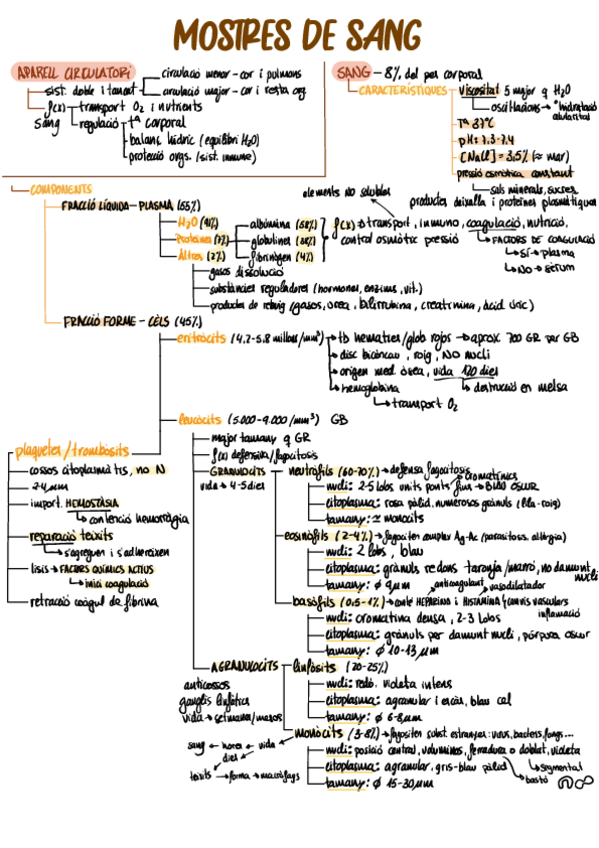 MOSTRES DE SANG
APARELL CIRCULATORI
sist. doble i tancat
circulació menor - cor i pulmons
circulació major - cor i resta org.
f(x)
sang
transport O₂ i nutrients
regulació
tª corporal
balanç hídric (equilibri H₂O)
protecció orgs. (sist. immune)
SANG - 8% del pes corporal
CARACTERÍSTIQUES
Viscositat 5 major q H₂O
oscil·lacions → hidratació
celularitat
Tª 37ºC
pH: 7.3-7.4
[NaCl] = 3,5% (≈ mar)
pressió osmòtica constant
sals minerals, sucres,
productes deixalla i proteïnes plasmàtiques
COMPONENTS
FRACCIÓ LÍQUIDA - PLASMA (55%)
elements NO solubles
H₂O (91%)
Proteïnes (7%)
Altres (2%)
albúmina (58%)
globulines (38%)
fibrinògen (4%)
f(x) → transport, inmuno, coagulació, nutrició,
control osmòtic pressió
FACTORS DE COAGULACIÓ
SÍ → plasma
NO → sèrum
gasos dissolució
substàncies reguladores (hormones, enzims, vit.)
productes de rebuig (gasos, urea, bilirrubina, creatinina, àcid úric)
FRACCIÓ FORME - CÈLS (45%)
eritròcits (4.2-5.8 milions/mm³)
tb hematies/glob rojos → aprox. 700 GR per GB
disc bicòncau, roig, NO nucli
origen med. òsea, vida 120 dies
destrucció en melsa
hemoglobina
transport O₂
leucòcits (5.000-9.000/mm³) GB
major tamany q GR
f(x) defensiva/fagocitosis
GRANULÒCITS
vida → 4-5 dies
neutròfils (60-70%) → defensa fagocitosis
cromatínics
nucli: 2-5 lobs units ponts fins → blau oscur
citoplasma: rosa pàlid, numerosos grànuls (lila-roig)
tamany: ≃ monocits
eosinòfils (2-4%) → fagociten complex Ag-Ac (parasitosis, al·lèrgia)
nucli: 2 lobs, blau
citoplasma: grànuls redons taronja/marró, no damunt
nucli
tamany: ϕ 9μm
anticoagulant
vasodilatador
basòfils (0,5-1%) → conté HEPARINA i HISTAMINA → canvis vasculars
inflamació
nucli: cromatina densa, 2-3 lobos
citoplasma: grànuls per damunt nucli, pórpura oscur
tamany: ϕ 10-13 μm
AGRANULÒCITS
anticossos
ganglis limfàtics
vida → setmanes/mesos
linfòsits (20-25%)
nucli: redó, violeta intens
citoplasma: agranular i escàs, blau cel
tamany: ϕ 6-8μm
monòcits (3-8%) → fagositen subst. estranyes: virus, bacteris, fongs...
sang ← hores ← vida
dies
teixits → forma → macròfags
nucli: posició central, voluminós, ferradura o doblat, violeta
segmental
bastó
citoplasma: agranular, gris-blau pàlid
tamany: ϕ 15-30μm
plaquetes/trombòsits
cossos citoplasmàtis, no N
2-4μm
import. HEMOSTÀSIA
contenció hemorràgia
reparació teixits
s'agreguen i s'adhereixen
lisis → FACTORS QUÍMICS ACTIUS
inici coagulació
retracció coàgul de fibrina